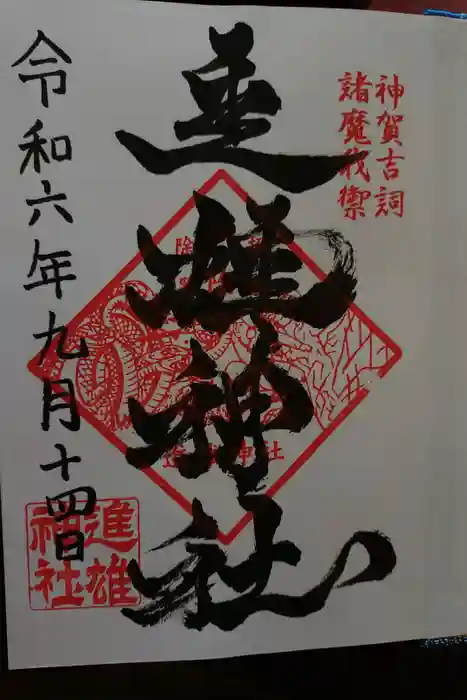 神賀吉詞
諸魔禦
進雄神社
進雄神社
令和六年九月十四日
進雄
神社